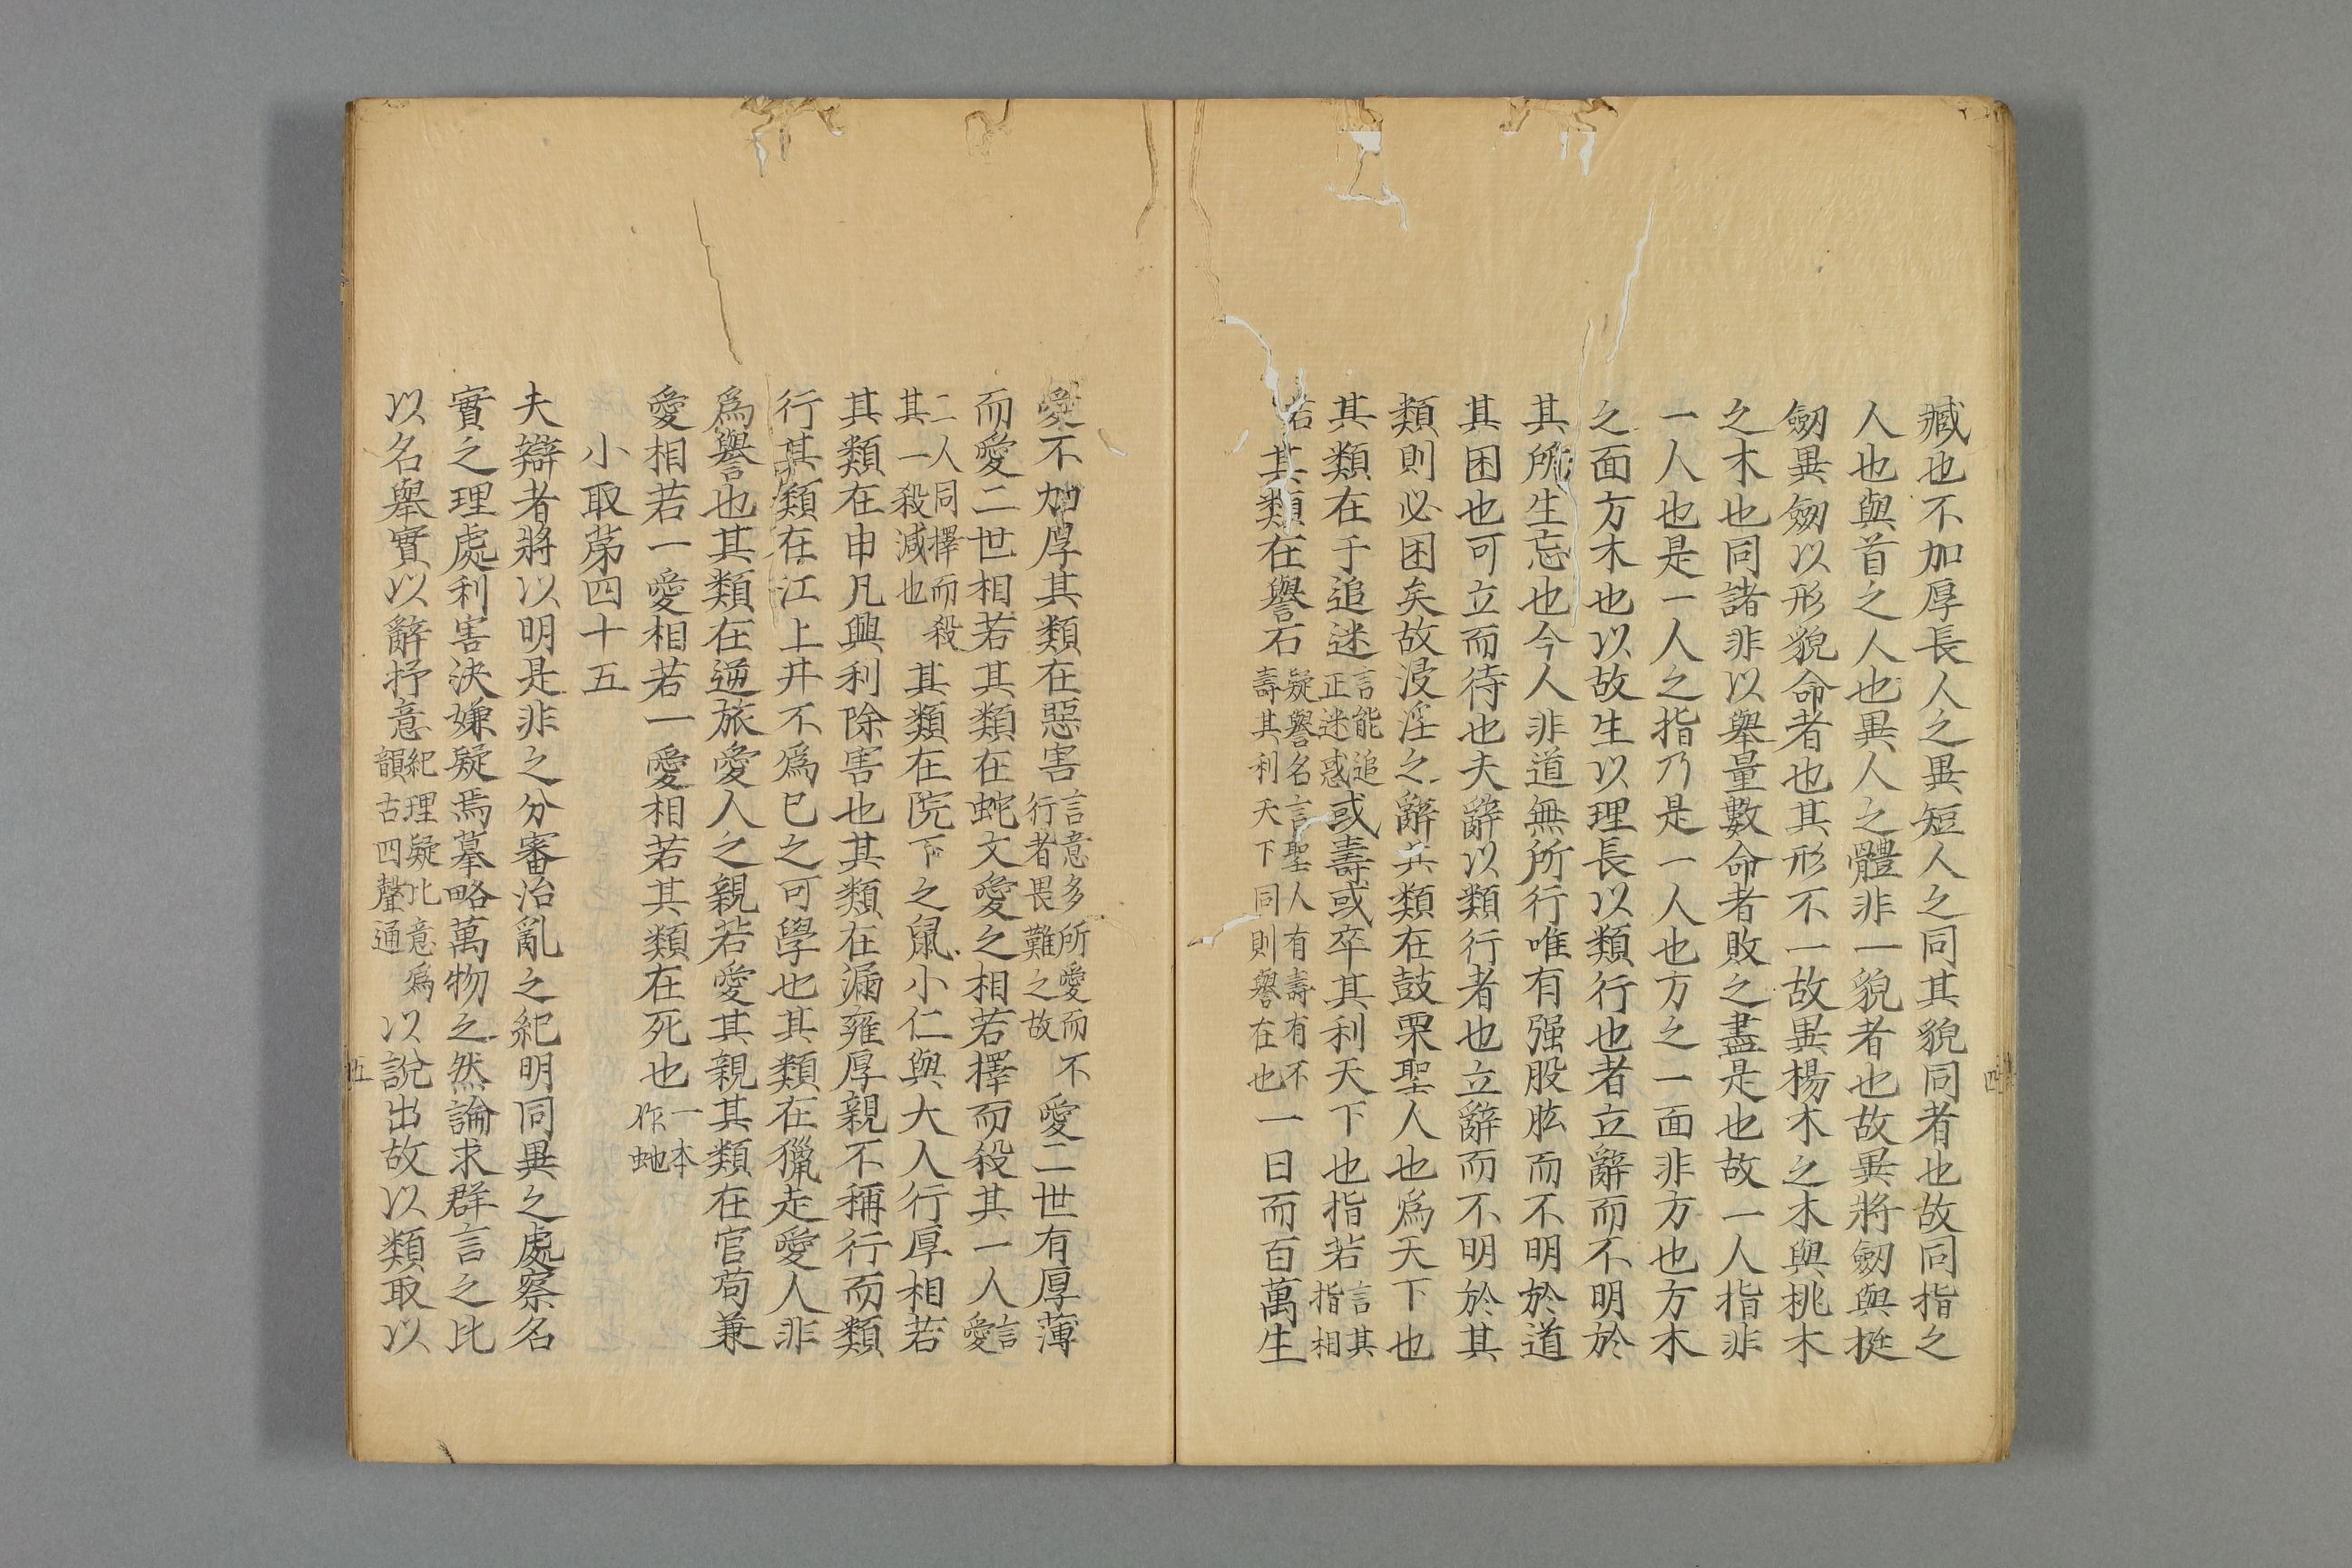 臧也不加厚長人之異短人之同其貌同者也故同指之
人也與首之人也異人之體非一貌者也故異將劒與挺
劒異劒以形貌命者也其形不一故異楊木之木與桃木
之木也同諸非以舉量數命者敗之盡是也故一人指非
一人也是一人之指乃是一人也方之一面非方也方木
之面方木也以故生以理長以類行也者立辭而不明於
其所生忘也今人非道無所行唯有强股肱而不明於道
其困也可立而待也夫辭以類行者也立辭而不明於其
類則必困矣故浸淫之辭其類在鼓栗聖人也為天下也
其類在于追迷言能追正迷惑或壽或卒其利天下也指若言其指相
若其類在譽石疑譽名言聖人有壽有不壽其利天下同則譽在也一日而百萬生
愛不加厚其類在惡害言意多所愛而不行者畏難之故愛二世有厚薄
而愛二世相若其類在蛇文愛之相若擇而殺其一人言愛
二人同擇而殺其一殺減也其類在院下之鼠小仁與大人行厚相若
其類在申凡興利除害也其類在漏雍厚親不稱行而類
行其類在江上井不為已之可學也其類在獵走愛人非
為譽也其類在逆旅愛人之親若愛其親其類在官苟兼
愛相若一愛相若一愛相若其類在死也一本作虵
小取苐四十五
夫辯者將以明是非之分審治亂之紀明同異之處察名
實之理處利害決嫌疑焉摹略萬物之然論求群言之比
以名舉實以辭抒意紀理疑比意為韻古四聲通以說出故以類取以
四
五